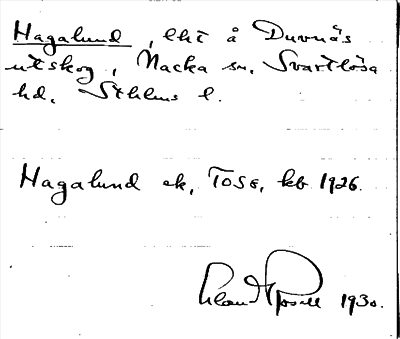 Hagalund, lht å Duvnäs
utskog, Nacka sn. Svartlösa
hd. Sthlms l.
Hagalund ek, TOSE, kb 1926.
1930.